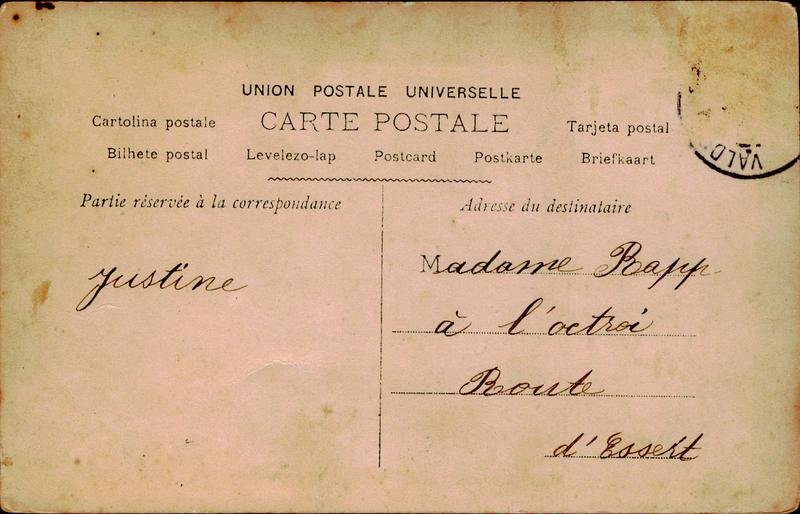 UNION POSTALE UNIVERSELLE
Cartolina postale CARTE POSTALE Tarjeta postal
Bilhete postal Levelezo-lap Postcard Postkarte Briefkaart
Partie réservée à la correspondance
Justine
Adresse du destinataire
Madame Rapp
à l'octroi
Route
d'Essert
VALD